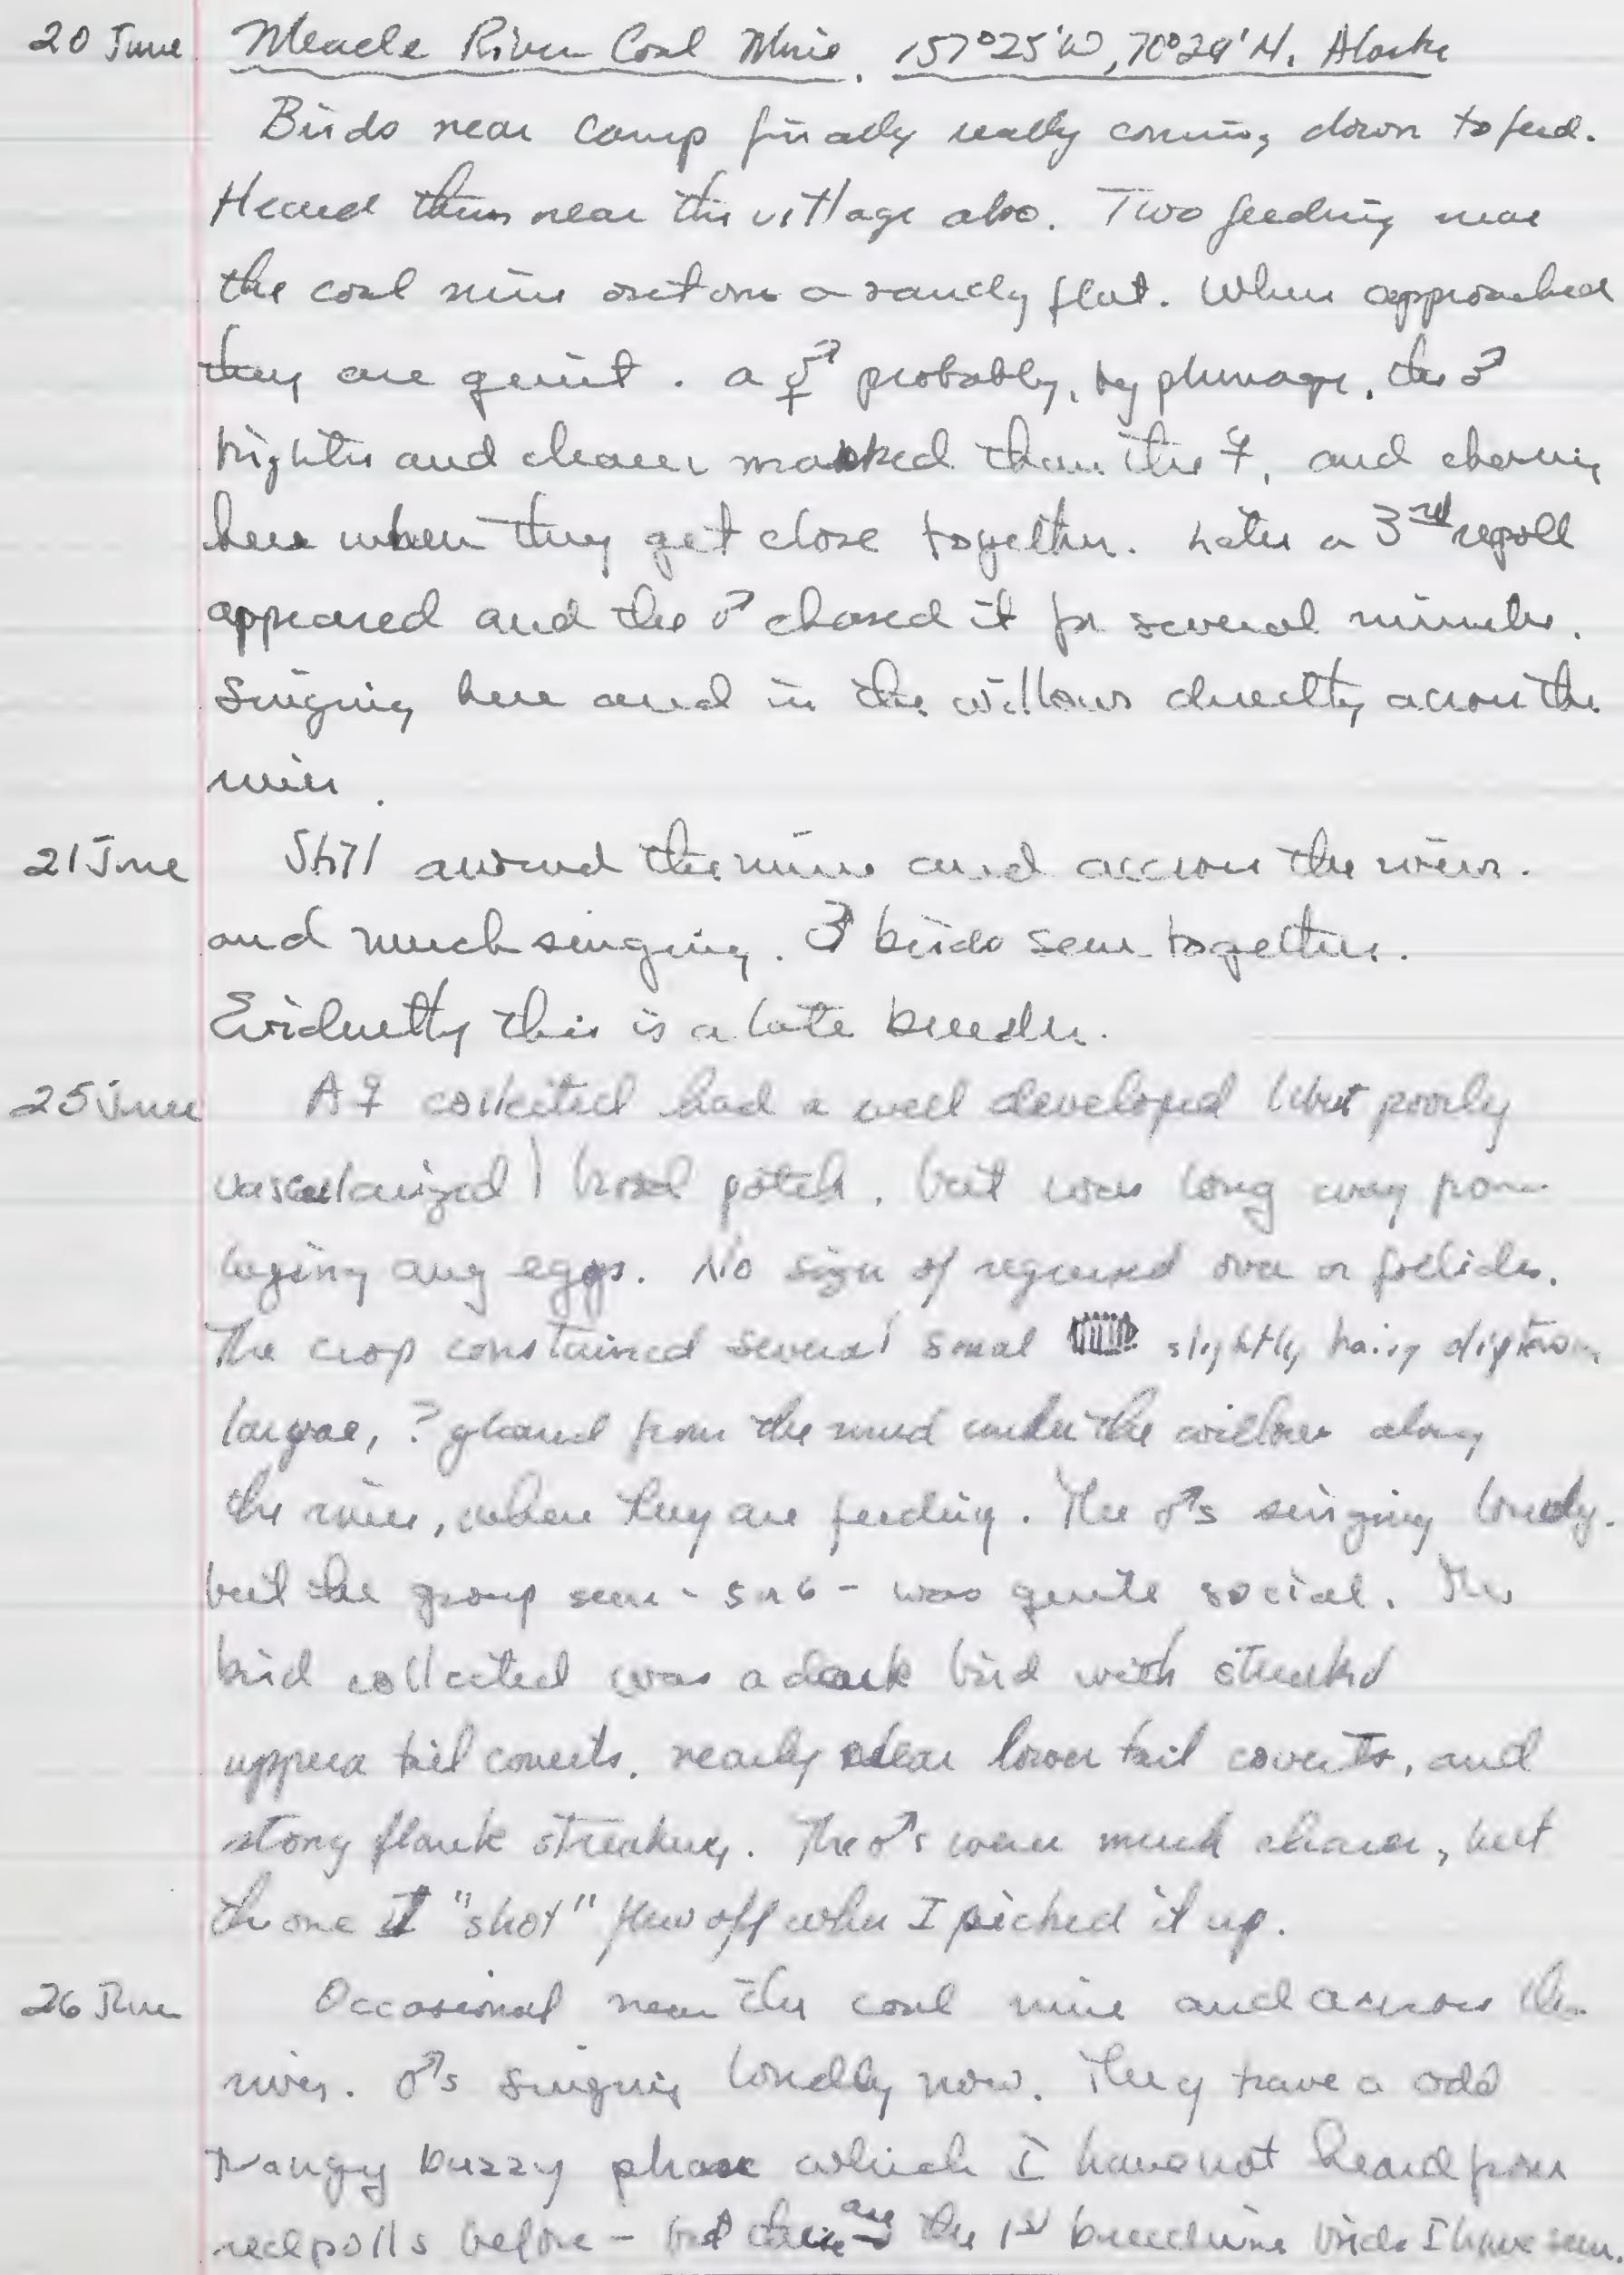 20 June Meade River Coal Mine, 157°25'W, 70°29'N. Alaska
Birds near camp finally really coming down to feed.
Heard them near the village also. Two feeding near
the coal mine out on a sandy flat. When approached
they are quiet. a ♂♀ probably, by plumage, the ♂
brighter and clearer marked than the ♀, and chasing
here when they get close together. Later a 3rd repoll
appeared and the ♂ chased it for several minutes.
Singing here and in the willows directly across the
river.
21 June Still around the mine and accross the river.
and much singing. 3 birds seen together.
Evidently this is a late breeder.
25 June A ♀ collected had a well developed (but poorly
vascularized) brood patch, but was long way from
laying any eggs. No sign of regressed ova or follicles.
The crop constained several smal slightly hairy dipteran
larvae, ? gleaned from the mud under the willows along
the river, where they are feeding. The ♂s singing loudly.
but the group seen - 5 or 6 - was quite social. The
bird collected was a dark bird with streaked
uppera tail coverts, nearly clear lower tail coverts, and
stong flank streaking. The ♂'s were much clearer, but
the one I "shot" flew off when I picked it up.
26 June Occasional near the coal mine and across the
river. ♂s singing loudly now. They have a odd
twangy buzzy phase which I have not heard from
redpolls before - but these are the 1st breeding birds I have seen.